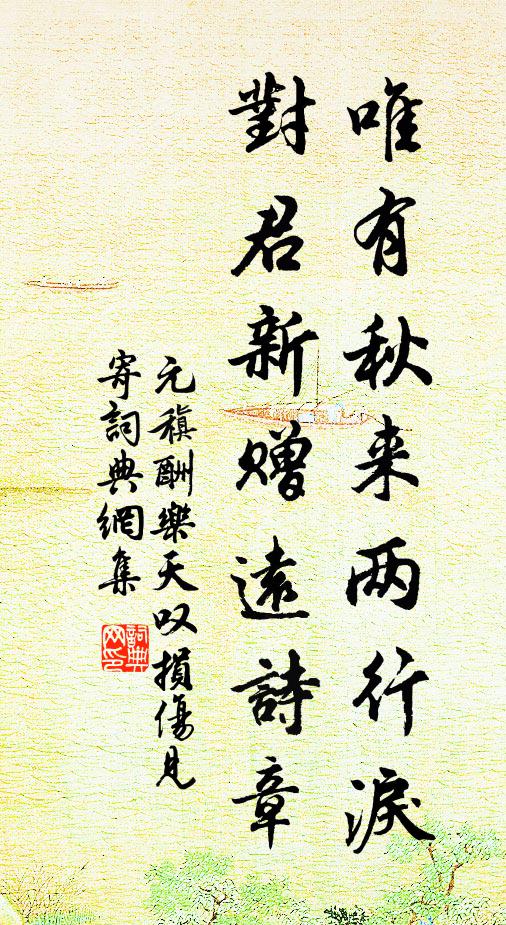 唯有秋来两行淚
對君新赠遠詩章
元稹酬樂天叹損傷見
寄詞典網集
詞典网印